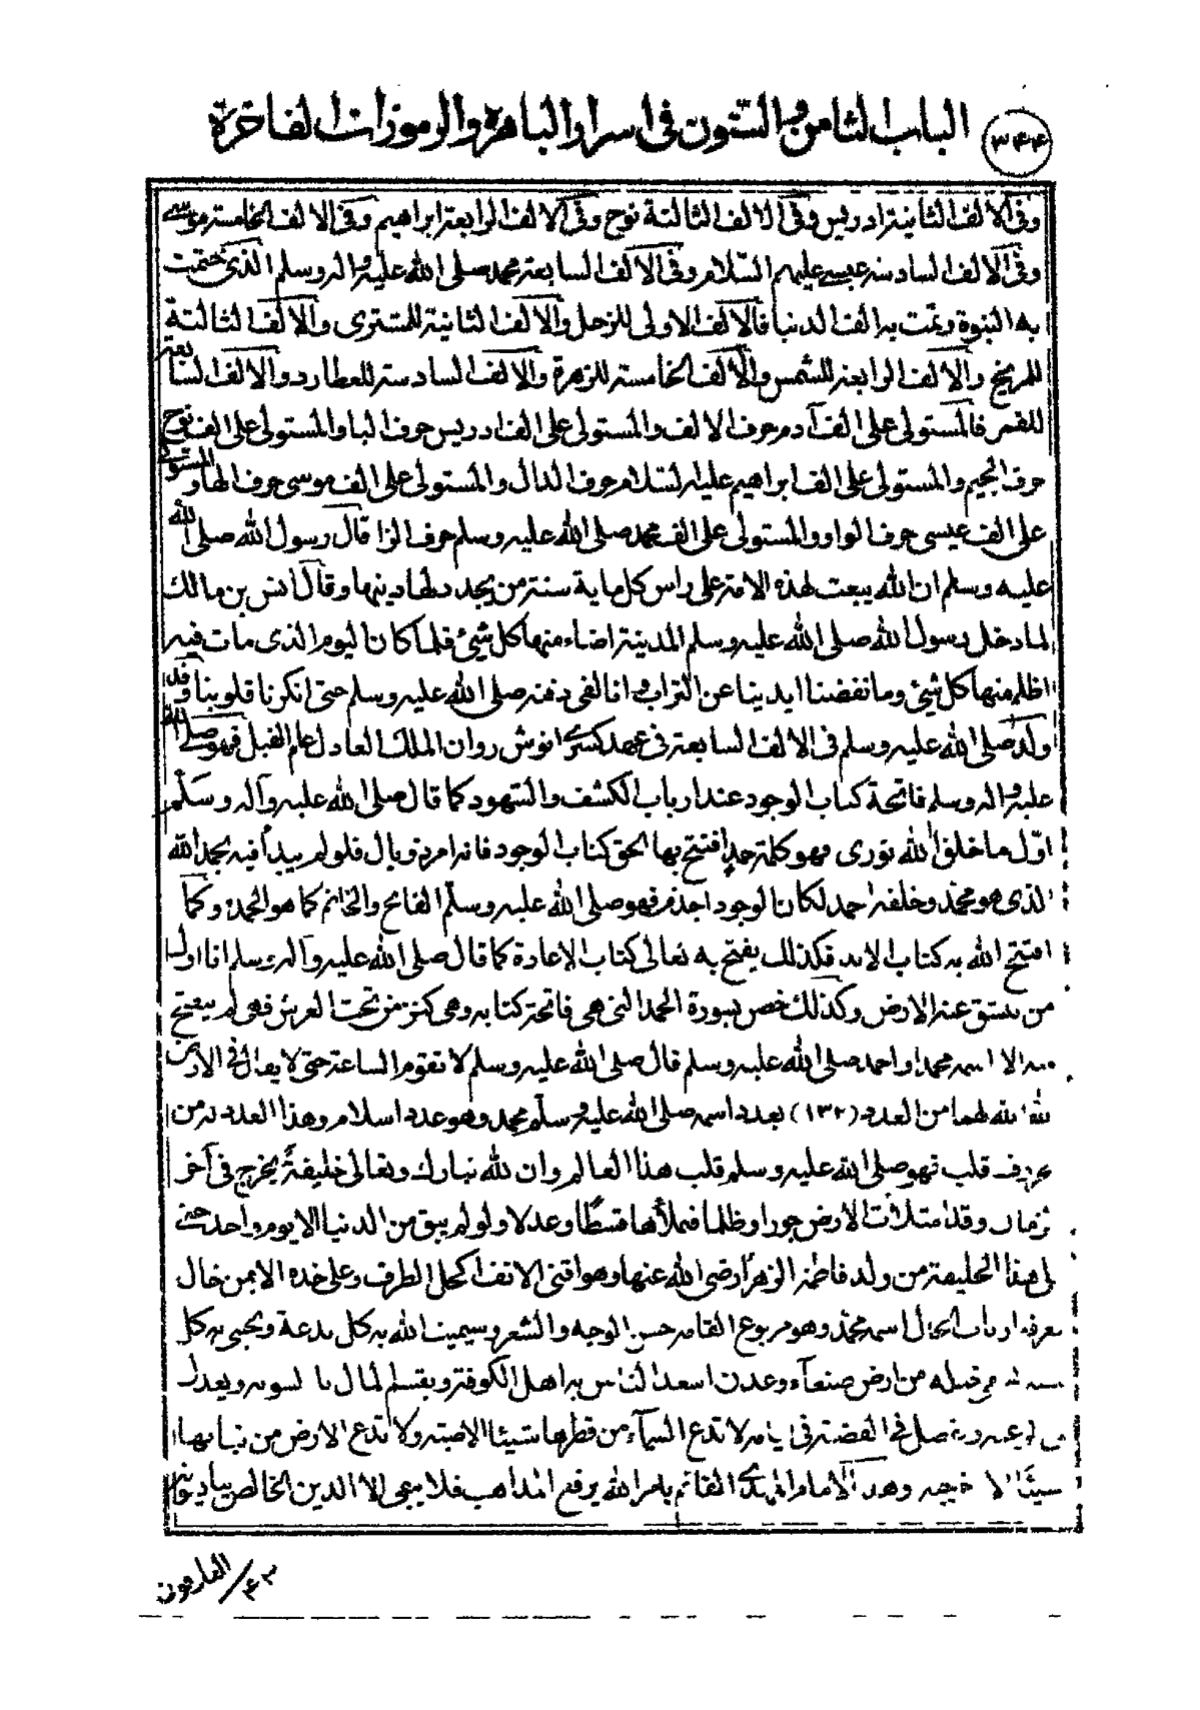 الباب الثامن والستون فى اسرار الباهرة والرموزات الفاخرة
٣٤٤
وفى الالف الثانية ادريس وفى الالف الثالثة نوح وفى الالف الرابعة ابراهيم وفى الالف الخامسة موسى
وفى الالف السادسة عيسى عليهم السلام وفى الالف السابعة محمد صلى الله عليه واله وسلم الذى ختمت
به النبوة وتمت به الف الدنيا فالالف الاولى للزحل والالف الثانية للمشترى والالف الثالثة
للمريخ والالف الرابعة للشمس والالف الخامسة للزهرة والالف السادسة للعطارد والالف السابعة
للقمر فالمستولى على الف آدم حرف الالف والمستولى على الف ادريس حرف البا والمستولى على الف نوح
حرف الجيم والمستولى على الف ابراهيم عليه السلام حرف الدال والمستولى على الف موسى حرف الها والمستولى
على الف عيسى حرف الواو والمستولى على الف محمد صلى الله عليه وسلم حرف الزا قال رسول الله صلى الله
عليه وسلم ان الله يبعث لهذه الامة على راس كل ماية سنة من يجدد لها دينها وقال انس بن مالك
لما دخل رسول الله صلى الله عليه وسلم المدينة اضاء منها كل شيئ فلما كان اليوم الذى مات فيه
اظلم منها كل شيئ وما نفضنا ايدينا عن التراب وانا لفى دفنه صلى الله عليه وسلم حتى انكرنا قلوبنا وقد
ولد صلى الله عليه وسلم فى الالف السابعة فى عهد كسرى انوش روان الملك العادل عام الفيل فهو صلى الله
عليه واله وسلم فاتحة كتاب الوجود عند ارباب الكشف والشهود كما قال صلى الله عليه وآله وسلم
اول ما خلق الله نورى فهو كلمة حمد افتتح بها الحق كتاب الوجود فانه امر ذو بال فلو لم يبدأ فيه بحمد الله
الذى هو محمد وخلفه احمد لكان الوجود اجذم فهو صلى الله عليه وسلم الفاتح والخاتم كما هو الحمد وكما
افتتح الله به كتاب الابد فكذلك يفتتح به تعالى كتاب الاعادة كما قال صلى الله عليه وآله وسلم انا اول
من تنشق عنه الارض وكذلك خص بسورة الحمد التى هى فاتحة كتابه وهى كنز من تحت العرش فهى لم يفتح
الا اسمه محمد او احمد صلى الله عليه وسلم قال صلى الله عليه وسلم لا تقوم الساعة حتى لا يقال فى الارض
الله الله لهما من العدد (١٣٢) بعدد اسمه صلى الله عليه وسلم محمد وهو عدد اسلام وهذا العدد له من
قلب فهو صلى الله عليه وسلم قلب هذا العالم وان لله تبارك وتعالى خليفة يخرج فى آخر
الزمان وقد امتلأت الارض جورا وظلما فيملأها قسطا وعدلا ولو لم يبق من الدنيا الا يوم واحد حتى
هذا الخليفة من ولد فاطمة الزهرا رضى الله عنها وهو اقنى الانف اكحل الطرف وعلى خده الايمن خال
يعرفه ارباب الحال اسمه محمد وهو مربوع القامة حسن الوجه والشعر وسيميت الله به كل بدعة ويحيى به كل
من ارض صنعآء وعدن اسعد الناس به اهل الكوفة ويقسم المال بالسوية ويعدل
ويفصل فى القضية فى ايامه لا تدع السمآء من قطرها شيئا الا صبته ولا تدع الارض من نباتها
شيئا الا اخرجته وهذا الامام المهدى القائم بامر الله يرفع المذاهب فلا يبقى الا الدين الخالص يبادئونه
العارفون / ٤٣